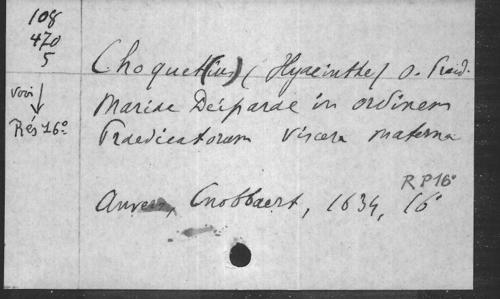 108
470
5
voir
Rés 16º
Choquet(ius) (Hyacinthe) O. Praed.
Mariae Deiparae in ordinem
Praedicatorum viscera materna
R P 16º
Anvers, Cnobbaert, 1634, 16º